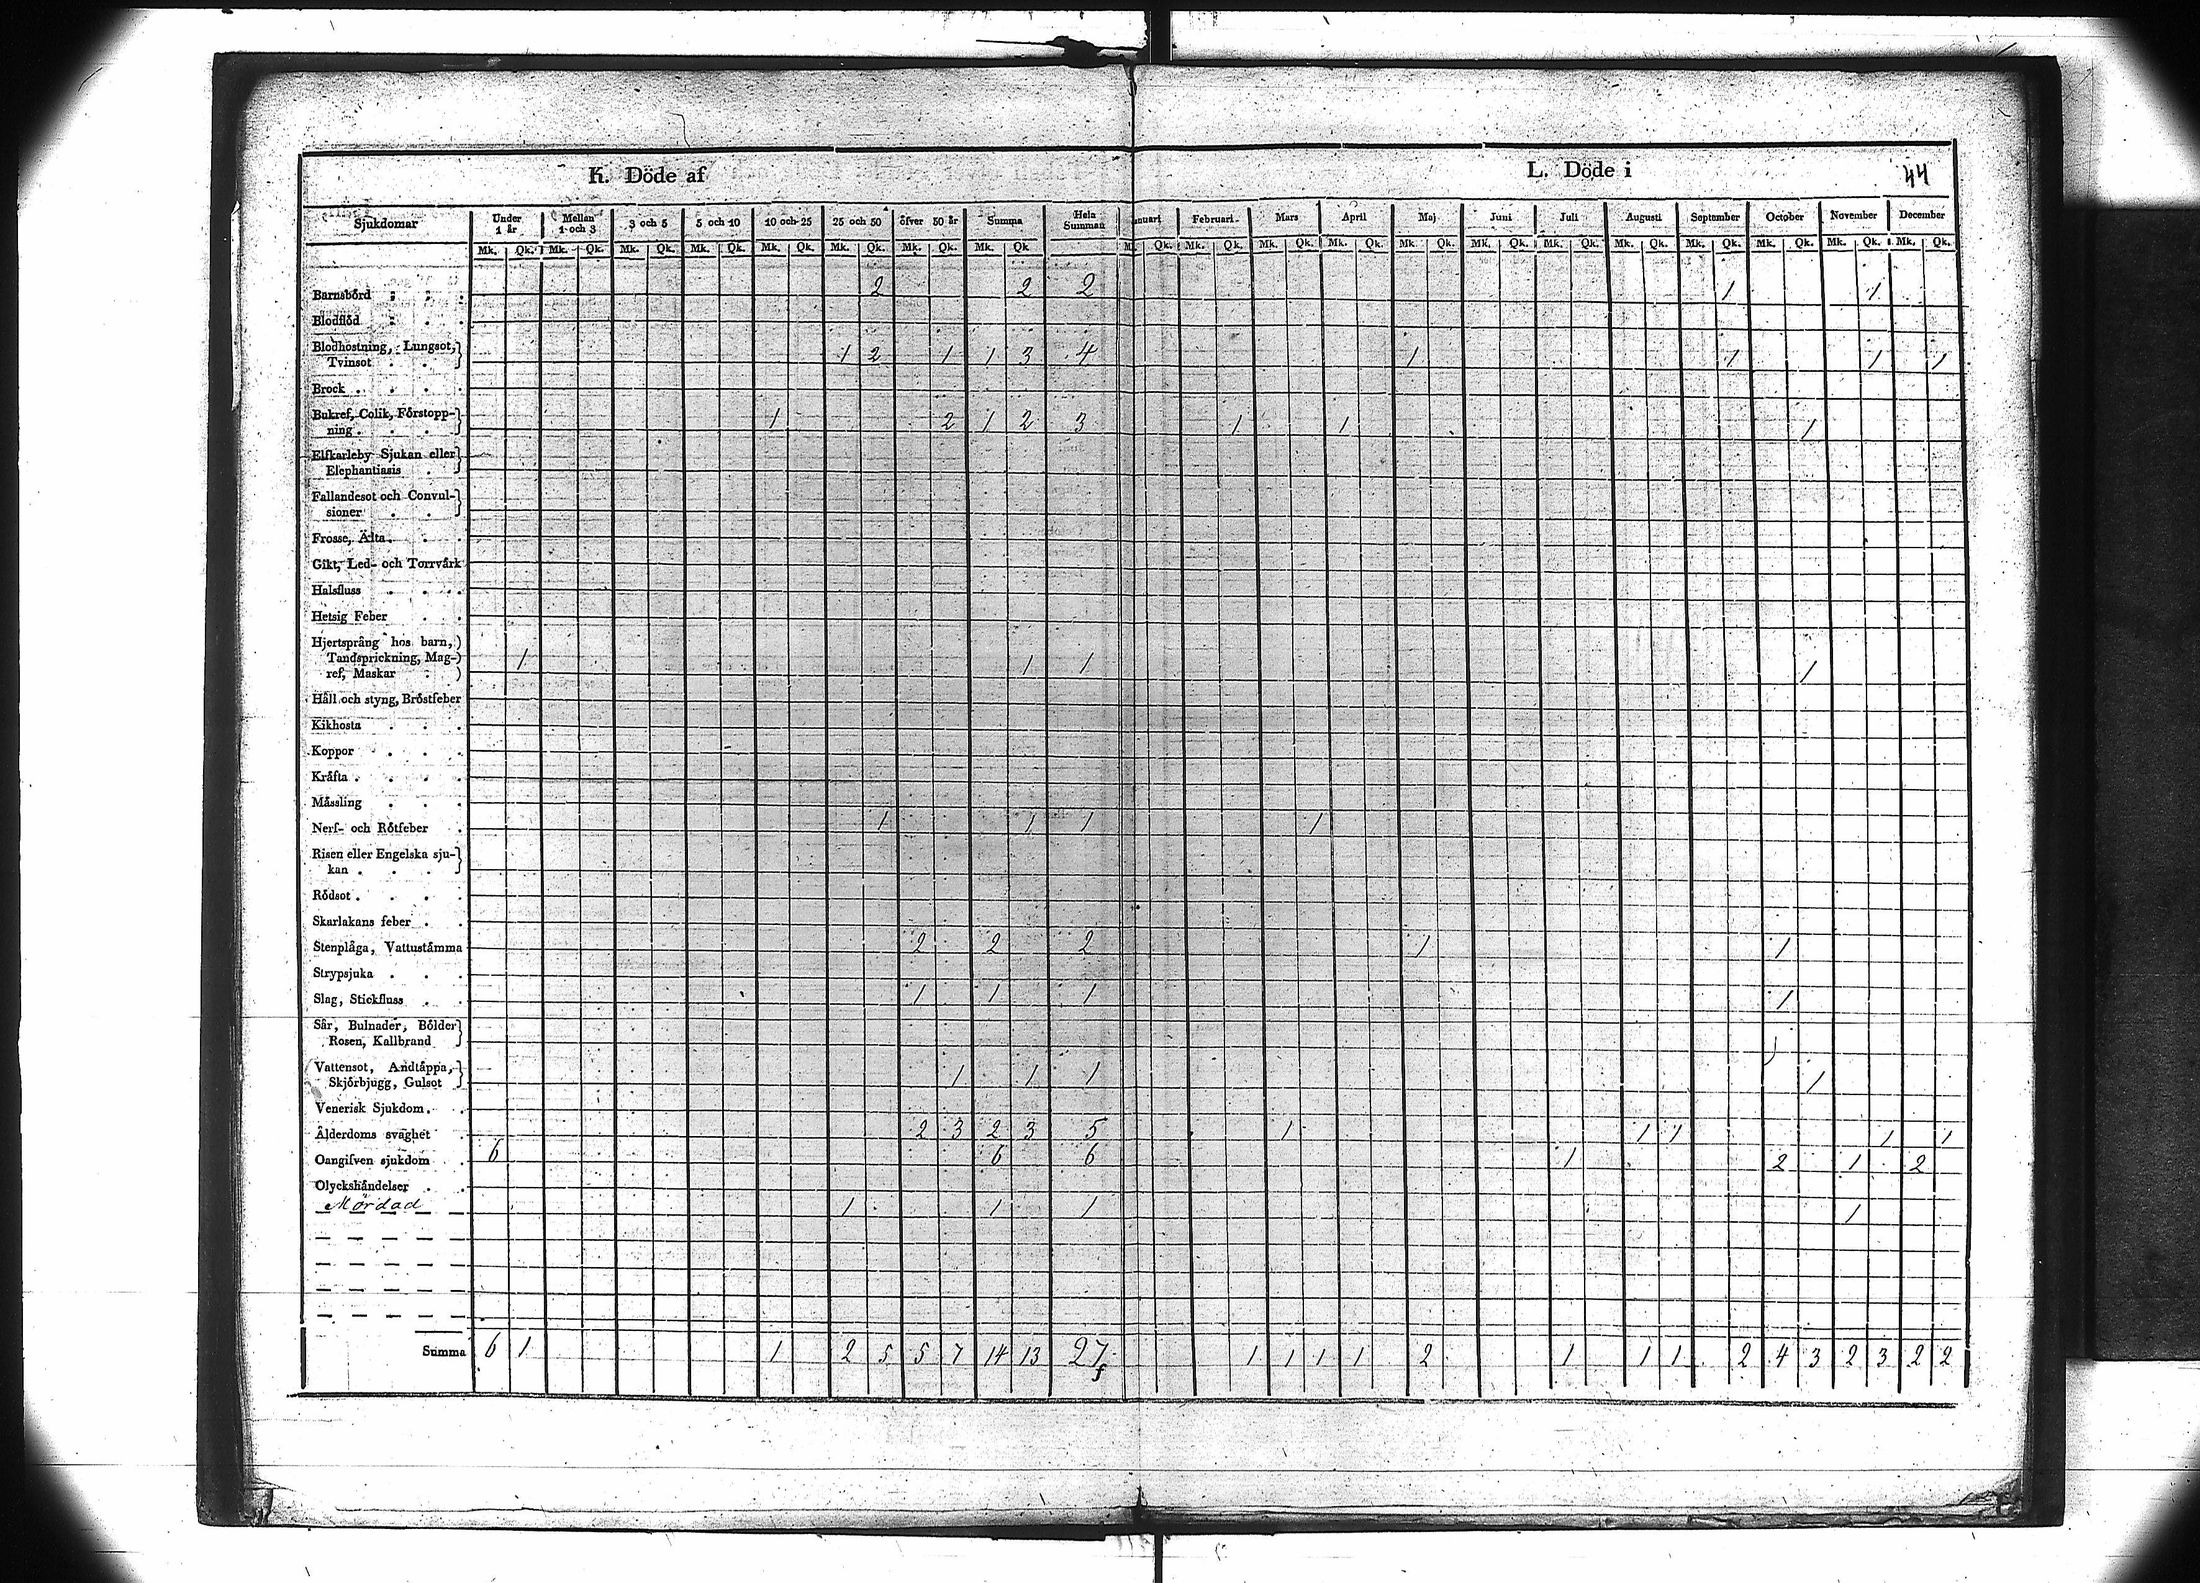 K. Döde af
L. Döde i 44
Sjukdomar Under 1 år Mellan 1 och 3 3 och 5 5 och 10 10 och 25 25 och 50 öfver 50 år Summa Hela Summan Januari Februari Mars April Maj Juni Juli Augusti September October November December
Mk. Qk. Mk. Qk. Mk. Qk. Mk. Qk. Mk. Qk. Mk. Qk. Mk. Qk. Mk. Qk Mk. Qk. Mk. Qk. Mk. Qk. Mk. Qk. Mk. Qk. Mk. Qk. Mk. Qk. Mk. Qk. Mk. Qk. Mk. Qk. Mk. Qk. Mk. Qk.
Barnsbörd 2 2 2 1 1
Blodflöd
Blodhostning, Lungsot,
Tvinsot 1 2 1 1 3 4 1 1 1 1
Brock
Bukref, Colik, Förstopp-
ning 1 2 1 2 3 1 1 1
Elfkarleby Sjukan eller
Elephantiasis
Fallandesot och Convul-
sioner
Frosse, Älta
Gikt, Led- och Torrvärk
Halsfluss
Hetsig Feber
Hjertsprång hos barn,
Tandsprickning, Mag-
ref, Maskar 1 1 1 1
Håll och styng, Bröstfeber
Kikhosta
Koppor
Kräfta
Mässling
Nerf- och Rötfeber 1 1 1 1
Risen eller Engelska sju-
kan
Rödsot
Skarlakans feber
Stenplåga, Vattustämma 2 2 2 1 1
Strypsjuka
Slag, Stickfluss 1 1 1 1
Sår, Bulnader, Bölder
Rosen, Kallbrand
Vattensot, Andtäppa,
Skjörbjugg, Gulsot 1 1 1 1
Venerisk Sjukdom
Ålderdoms svaghet 2 3 2 3 5 1 1 1 1 1
Oangifven sjukdom 6 6 6 1 2 1 2
Olyckshändelser
Mördad 1 1 1 1
Summa 6 1 1 2 5 5 7 14 13 27 1 1 1 1 2 1 1 1 2 4 3 2 3 2 2